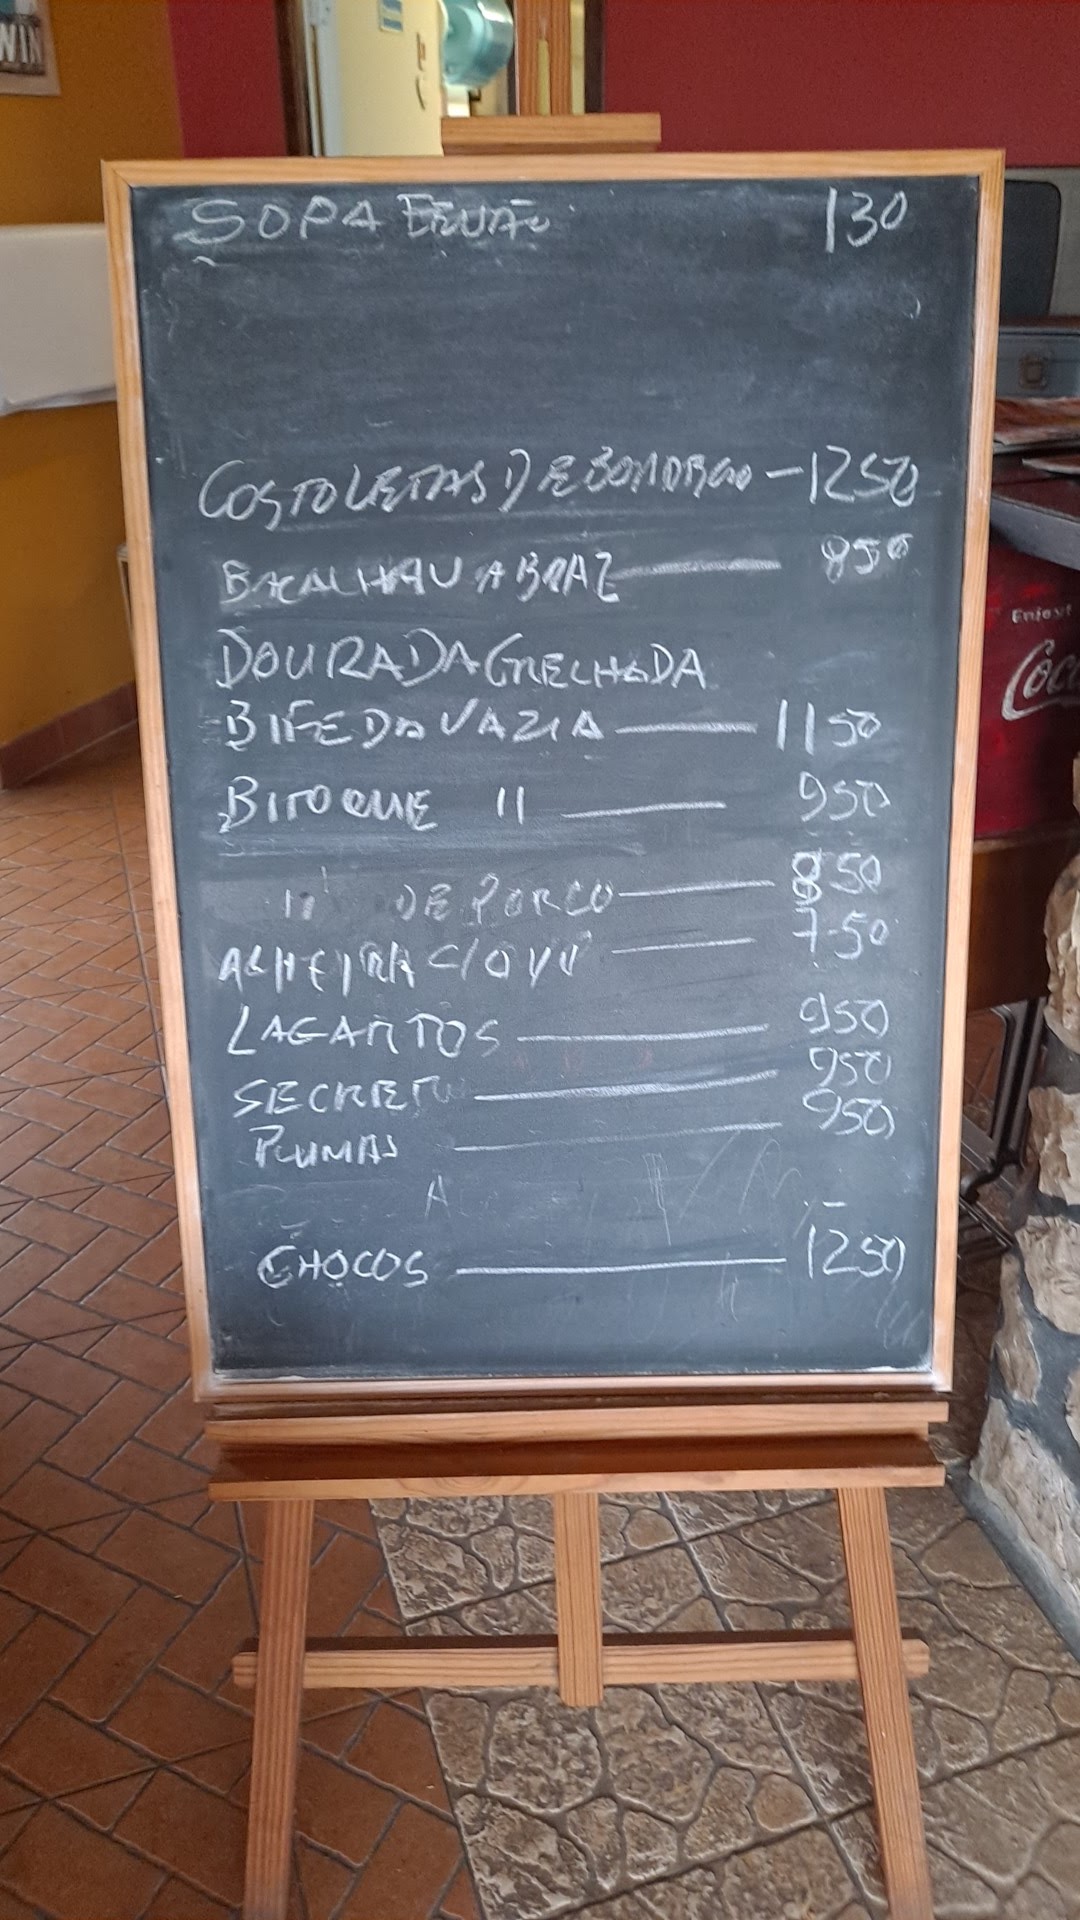 WIN
SOPA 130
COSTOLETAS DE BORREGO — 1250
BACALHAU A BRAZ — 850
DOURADA GRELHADA
BIFE DA VAZIA — 1150
BITOQUE 11 — 950
11 DE PORCO — 850
ALHEYRA C/OVO — 7.50
LAGARTOS — 950
SECRETO — 950
PLUMAS — 950
CHOCOS — 1250
Enjoy!
Coc